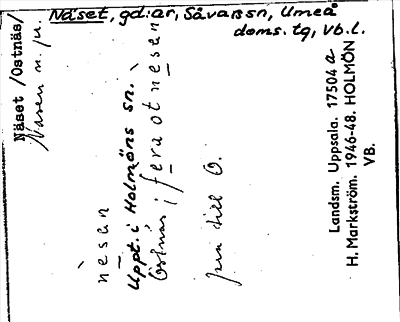 Näset, gd:ar, Sävarssn, Umeå
doms. tg, Vb. l.
Näset /Ostnäs/
Näsen m. fl.
nèsen
Uppt. i Holmöns sn.
Östnäs i fera ot nesen
fara till Ö.
Landsm. Uppsala. 17504 a
H. Markström. 1946-48. HOLMÖN
VB.